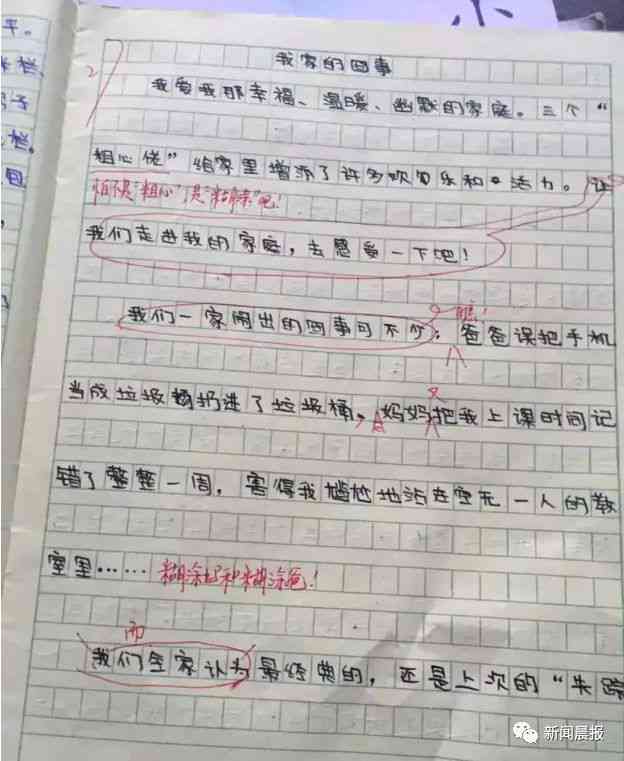 小
平。
我家的囧事
我爱我那幸福、温暖、幽默的家庭。三个“
粗心佬”给家里增添了许多欢乐和活力。让
怕不是“粗心”是“糊涂”吧！
我们走进我的家庭，去感受一下吧！
瞧！
我们一家闹出的囧事可不少：爸爸误把手机
又
当成垃圾扔进了垃圾桶，妈妈把我上课时间记
错了整整一周，害得我尴尬地站在空无一人的教
室里……糊涂妈和糊涂爸！
而
我们全家认为最经典的，还是上次的“失踪
新闻晨报